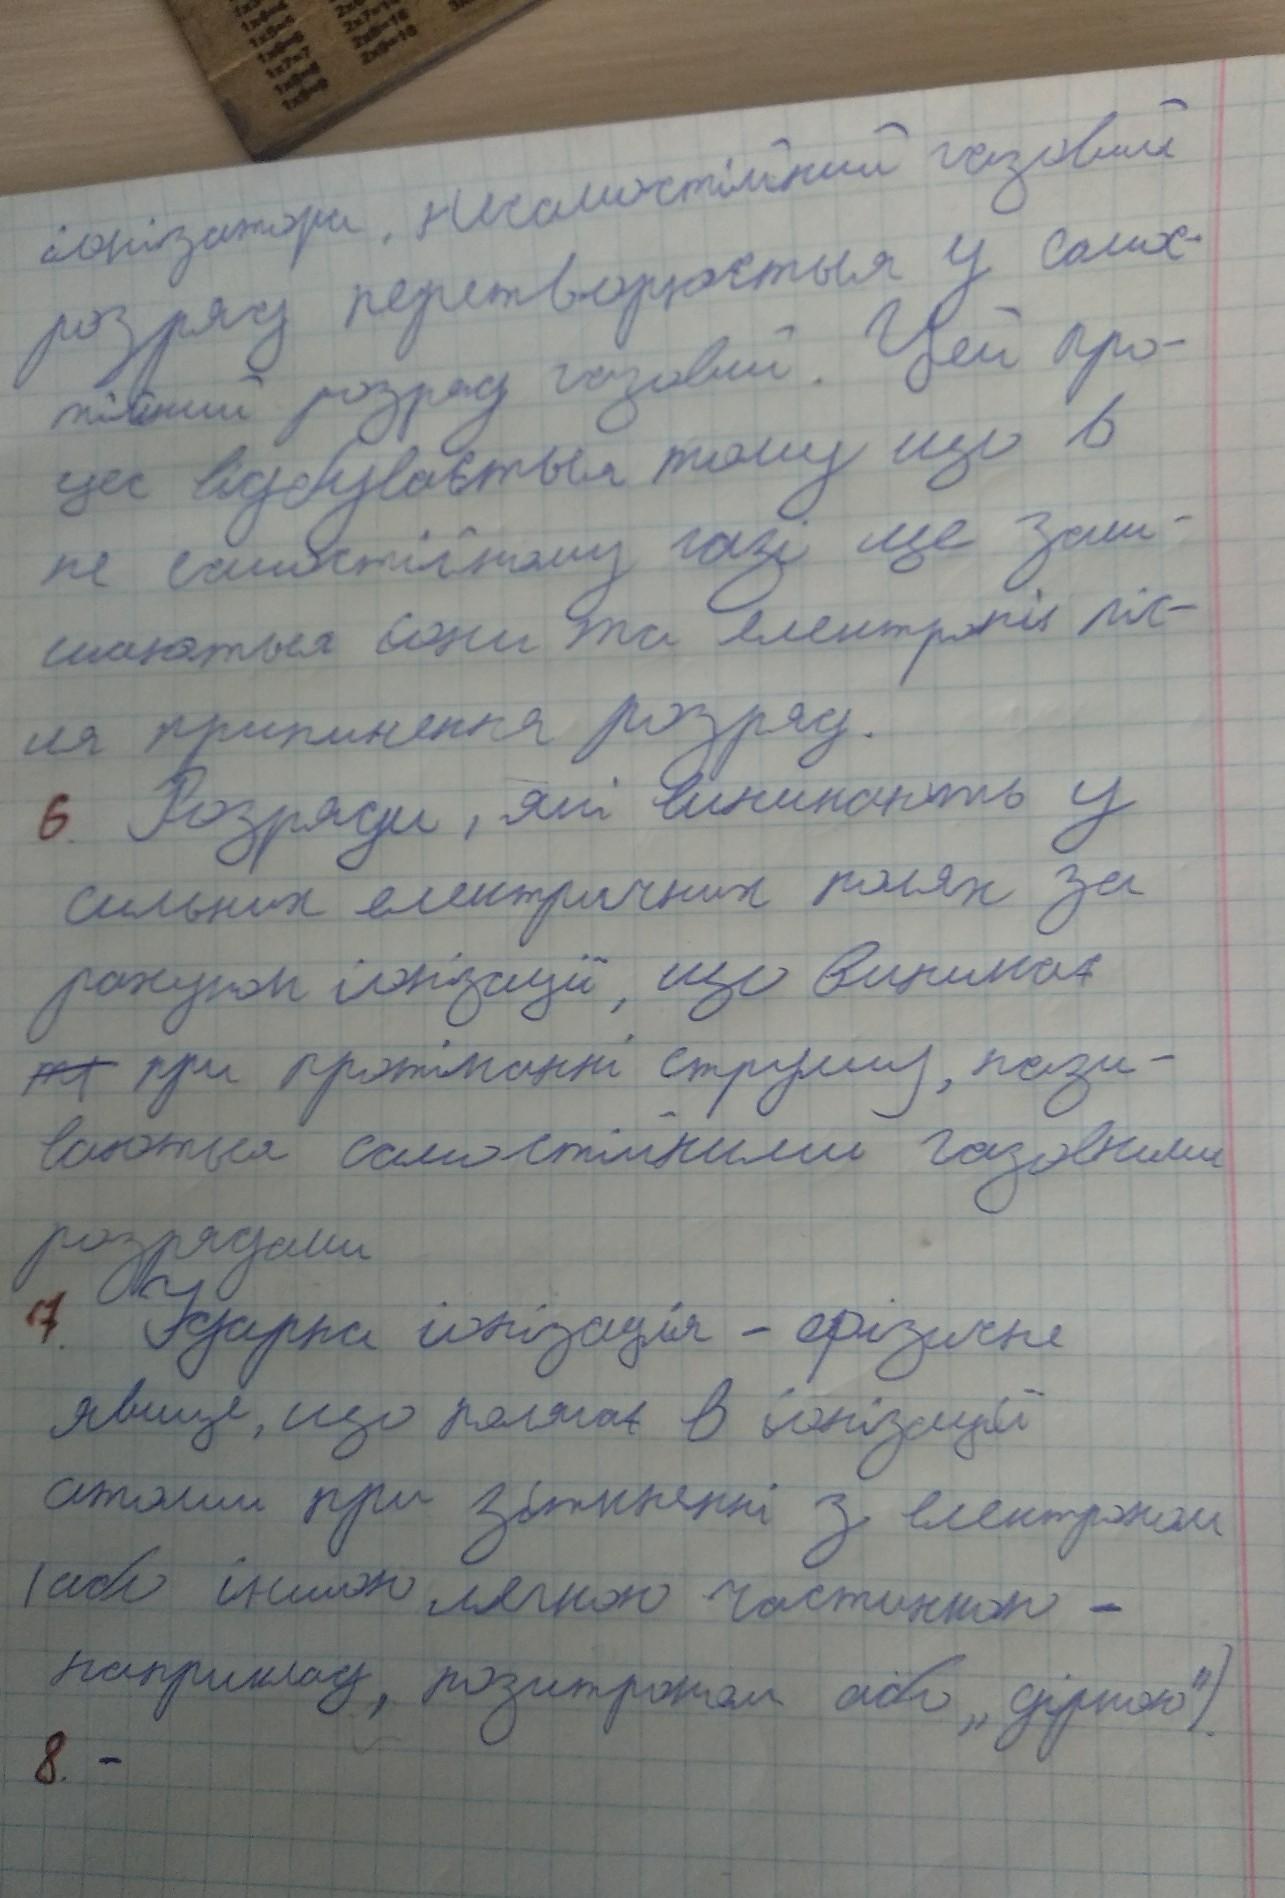 іонізатора. Несамостійний газовий
розряд перетворюється у самос-
тійний розряд газовий. Цей про-
цес відбувається тому що в
не самостійному газі ще зали-
шаються іони та електронів піс-
ля припинення розряд.
6. Розряди, які виникають у
сильних електричних полях за
рахунок іонізації, що виникає
при протіканні струму, нази-
ваються самостійними газовними
розрядами
7. Ударна іонізація - фізичне
явище, що полягає в іонізації
атома при зіткненні з електроном
(або іншою легкою частинкою -
наприклад, позитроном або „діркою")
8. -